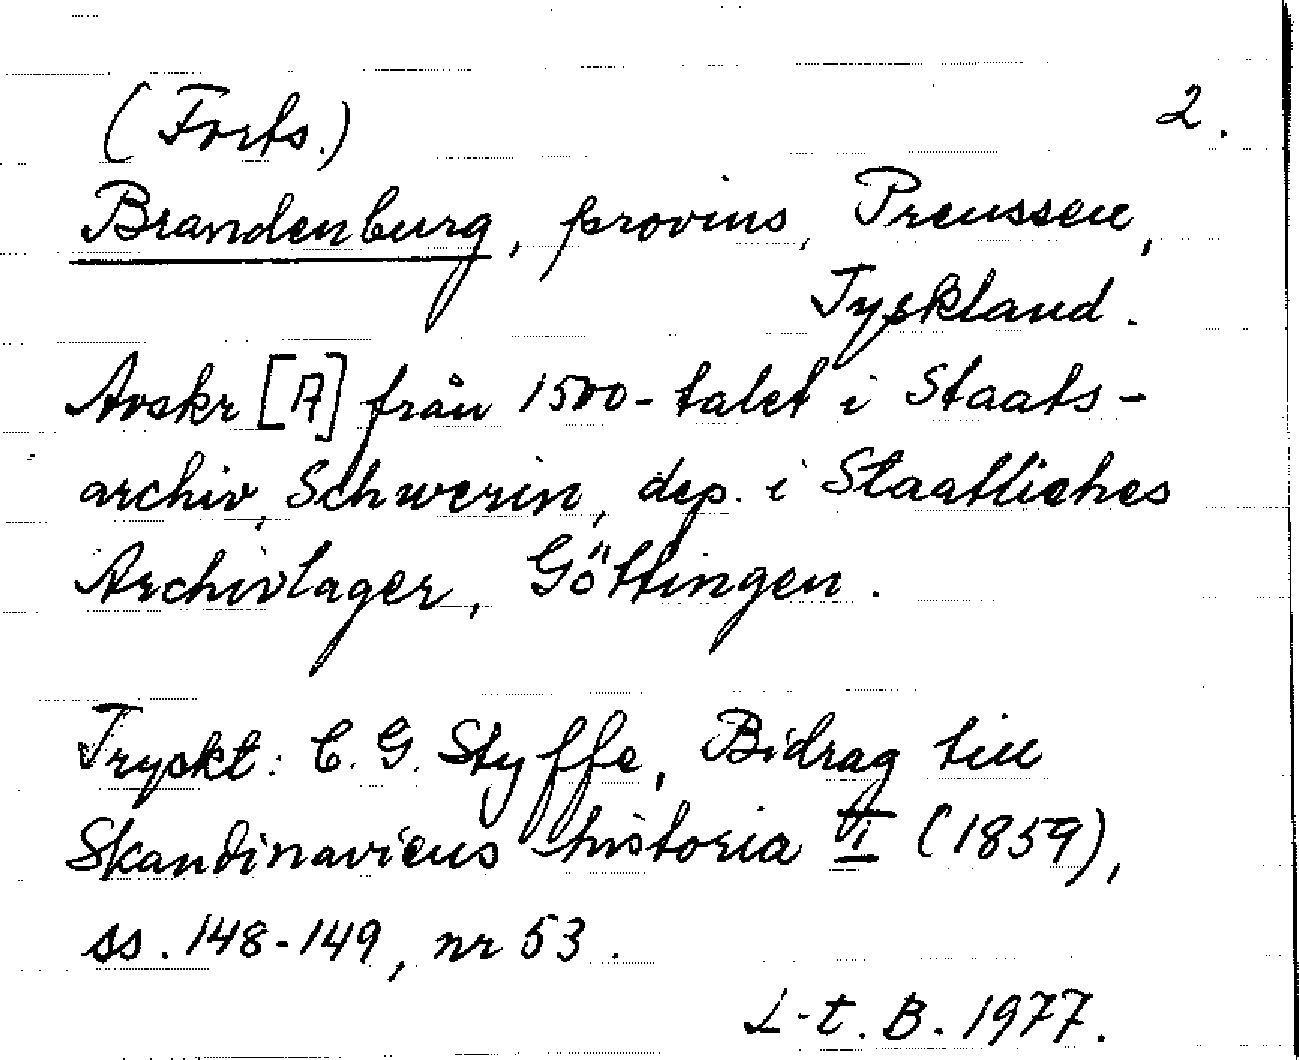 (Forts.) 2.
Brandenburg, provins, Preussen,
Tyskland.
Avskr [A] från 1500-talet i Staats-
archiv, Schwerin, dep. i Staatliches
Archivlager, Göttingen.
Tryckt: C. G. Styffe, Bidrag till
Skandinaviens historia I (1859),
ss. 148-149, nr 53.
L-t. B. 1977.